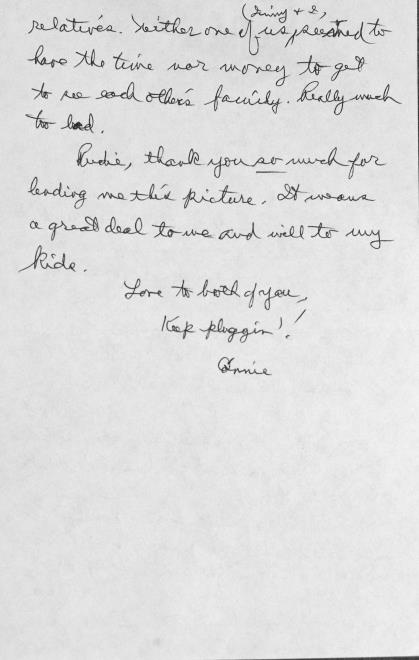 (Jinny + I,
relatives. Neither one of us seemed to
have the time nor money to get
to see each other's family. Really much
too bad.
Rudie, thank you so much for
lending me this picture. It means
a great deal to me and will to my
kids.
Love to both of you,
Keep pluggin'!!
Annie